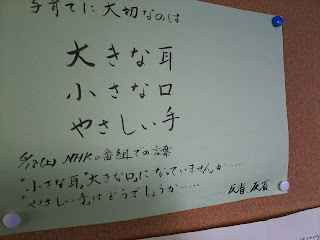 子育てに大切なのは
大きな耳
小さな口
やさしい手
(土) NHKの番組での言葉
"小さな耳""大きな口"になっていませんか……
"やさしい手"はどうでしょうか…… 反省 反省